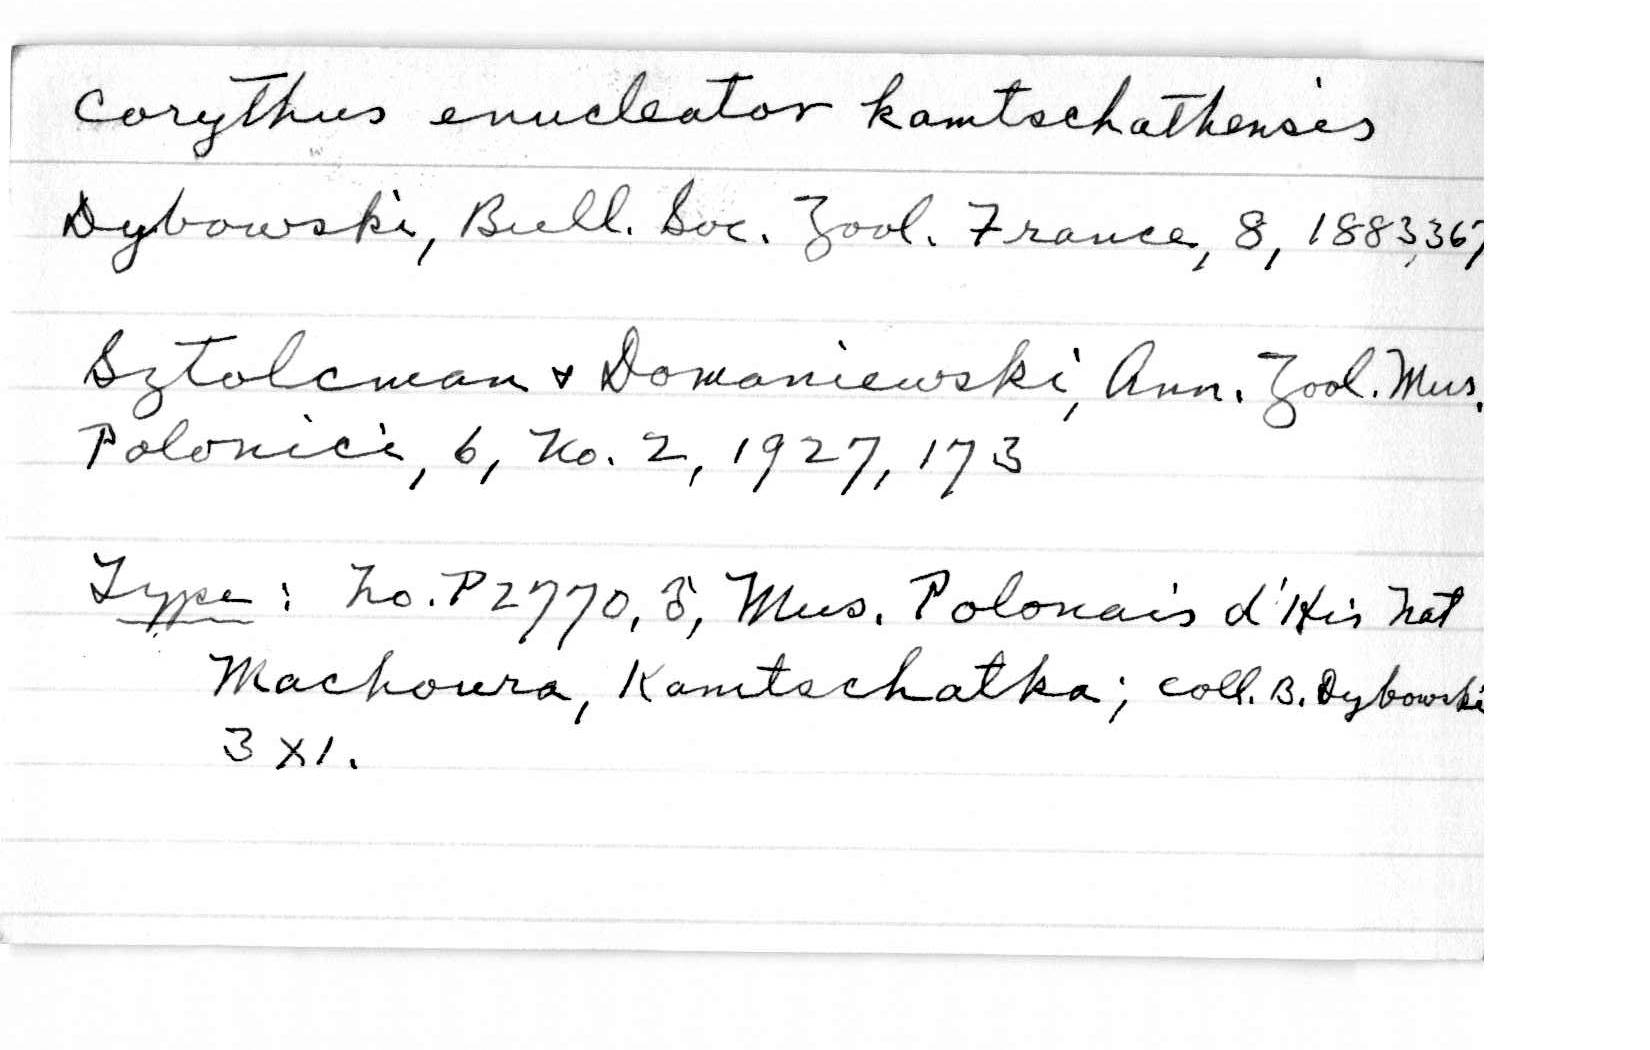 Corythus enucleator kamtschathensis
Dybowski, Bull. Soc. Zool. France, 8, 1883, 367
Sztolcman & Domaniewski, Ann. Zool. Mus.
Polonici, 6, No. 2, 1927, 173
Type: No. P2770, ♂, Mus. Polonais d'His Nat
Machoura, Kamtschatka; coll. B. Dybowski
3 XI.